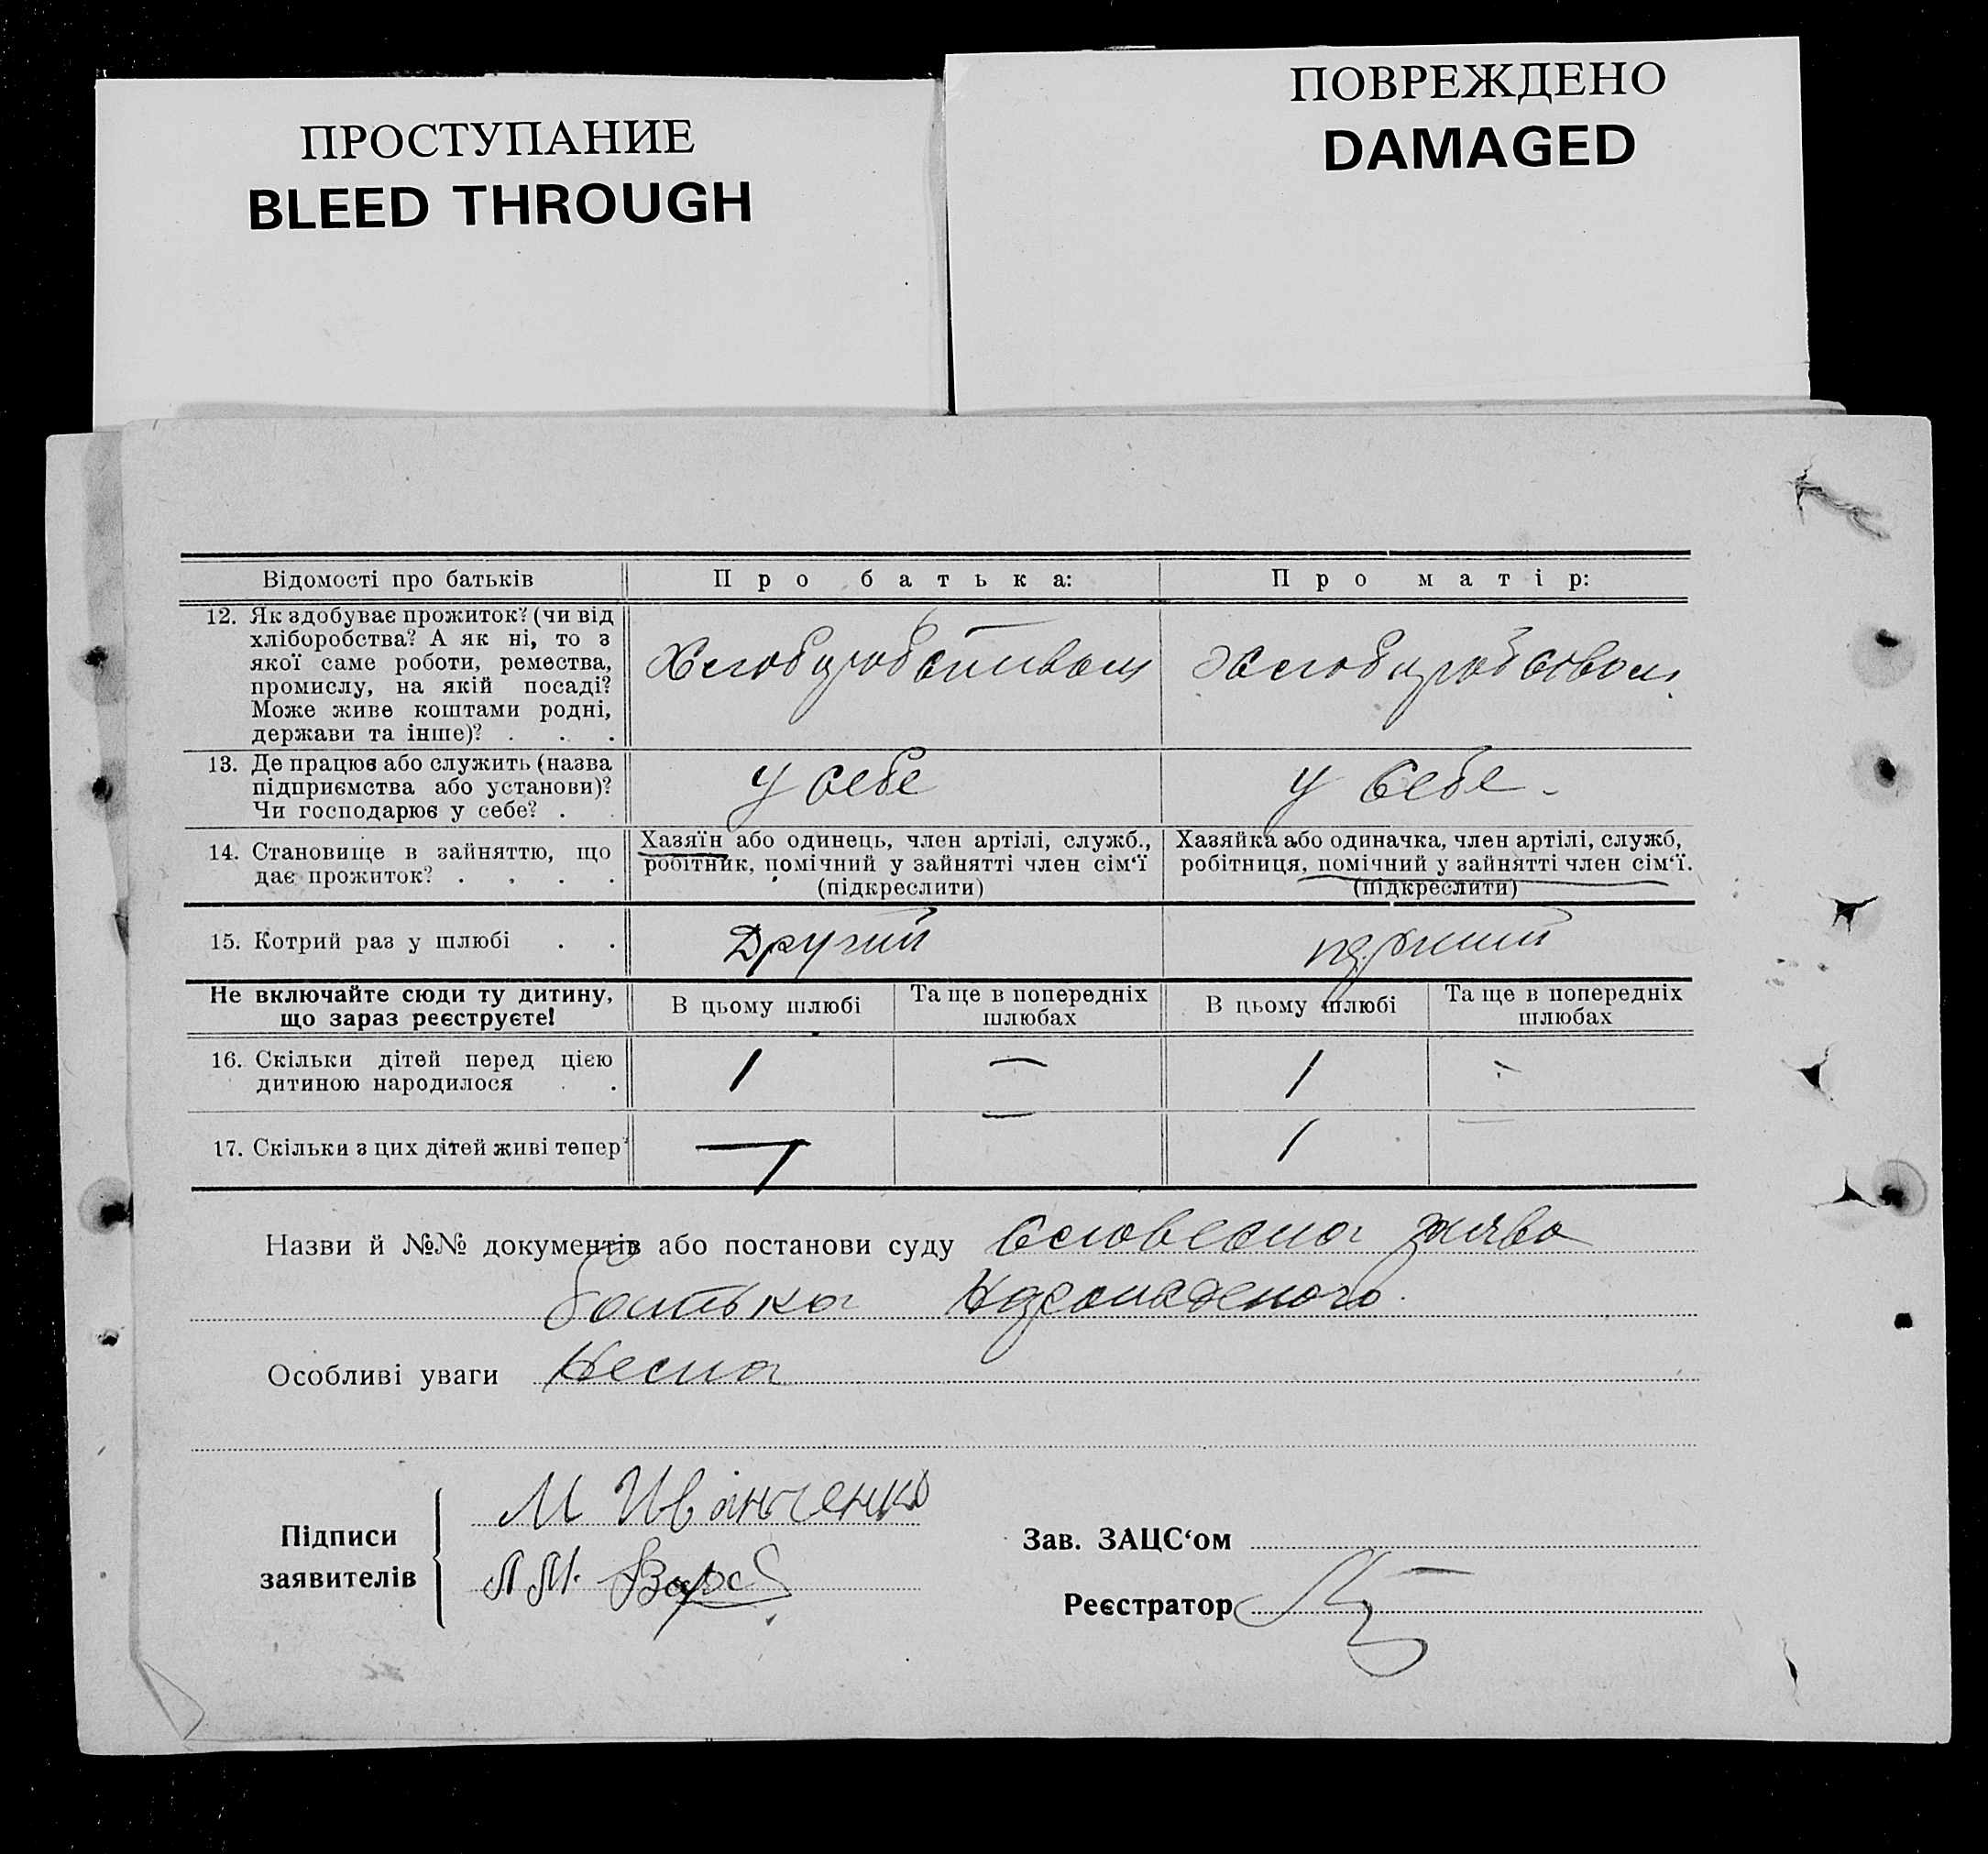 ПРОСТУПАНИЕ
BLEED THROUGH
ПОВРЕЖДЕНО
DAMAGED
Відомості про батьків
Про батька:
Про матір:
12. Як здобуває прожиток? (чи від
хліборобства? А як ні, то з
якої саме роботи, ремества,
промислу, на якій посаді?
Може живе коштами родні,
держави та інше)? . . .
13. Де працює або служить (назва
підприємства або установи)?
Чи господарює у себе? . .
У себе
У себе -
14. Становище в зайняттю, що
дає прожиток? . . . .
Хазяїн або одинець, член артілі, служб.,
робітник, помічний у зайнятті член сім‘ї
(підкреслити)
Хазяйка або одиначка, член артілі, служб,
робітниця, помічний у зайнятті член сім‘ї.
(підкреслити)
15. Котрий раз у шлюбі . .
Другий
Не включайте сюди ту дитину,
що зараз реєструєте!
В цьому шлюбі
Та ще в попередніх
шлюбах
В цьому шлюбі
Та ще в попередніх
шлюбах
16. Скільки дітей перед цією
дитиною народилося . .
1 — 1 -
17. Скільки з цих дітей живі тепер?
— 1 — 1 —
Назви й №№ документів або постанови суду Словесна заява
батька
Особливі уваги
Підписи
заявителів
М Иванченко
Зав. ЗАЦС‘ом
Реєстратор